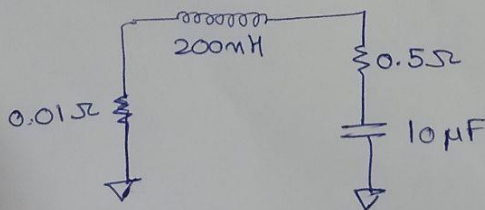 200nH
0.5Ω
0.01Ω
10μF